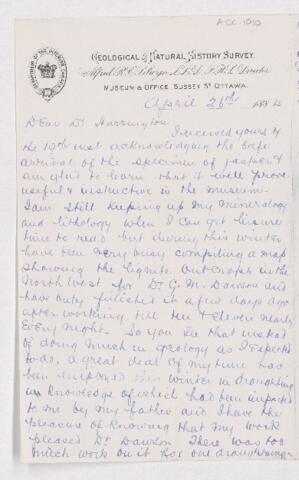 ACC-1010
GEOLOGICAL & NATURAL HISTORY SURVEY.
Alfred R. C. Selwyn, LL.D., F.R.S. Director
MUSEUM & OFFICE, SUSSEX ST OTTAWA.
April 26th 1884
Dear Dr Harrington
I received yours of
the 19th inst acknowledging the safe
arrival of the specimen of jasper &
am glad to learn that it will prove
useful & instructive in the museum.
I am still keeping up my mineralogy
and lithology when I can get leisure
time to read but during this winter
have been very busy compiling a map
showing the lignite outcrops in the
North West for Dr G. M. Dawson and
have only finished it a few days ago
after working till ten & eleven nearly
every night. So you see that instead
of doing much in geology as I expected
to do, a great deal of my time has
been employed this winter in draughting
a knowledge of which had been imparted
to me by my father and I have the
pleasure of knowing that my work
pleased Dr Dawson There was too
much work on it for one draughtsman